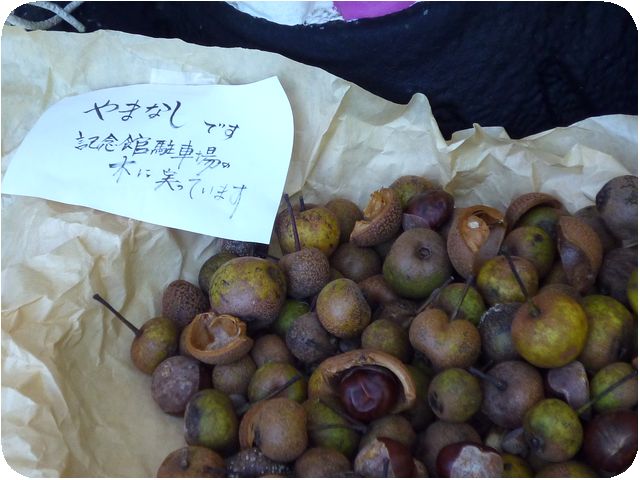 やまなし です
記念館駐車場の
木に実っています